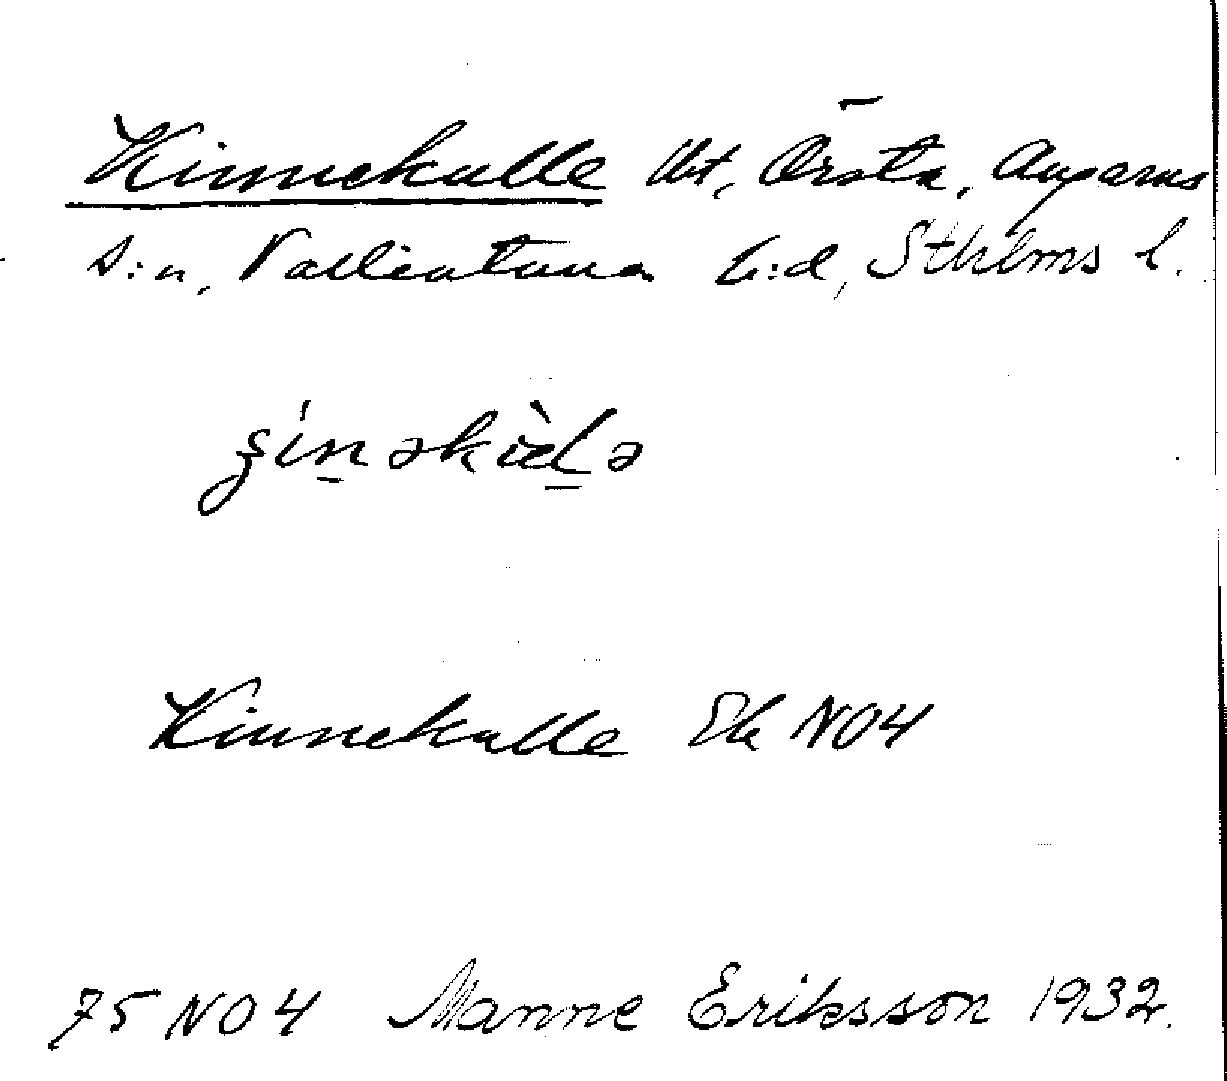 Kinnekulle Ut, Örsta, Angarns
s:n, Vallentuna h:d, Sthlms l.
Kinnekulle Ek NO4
75 NO4 Manne Eriksson 1932.